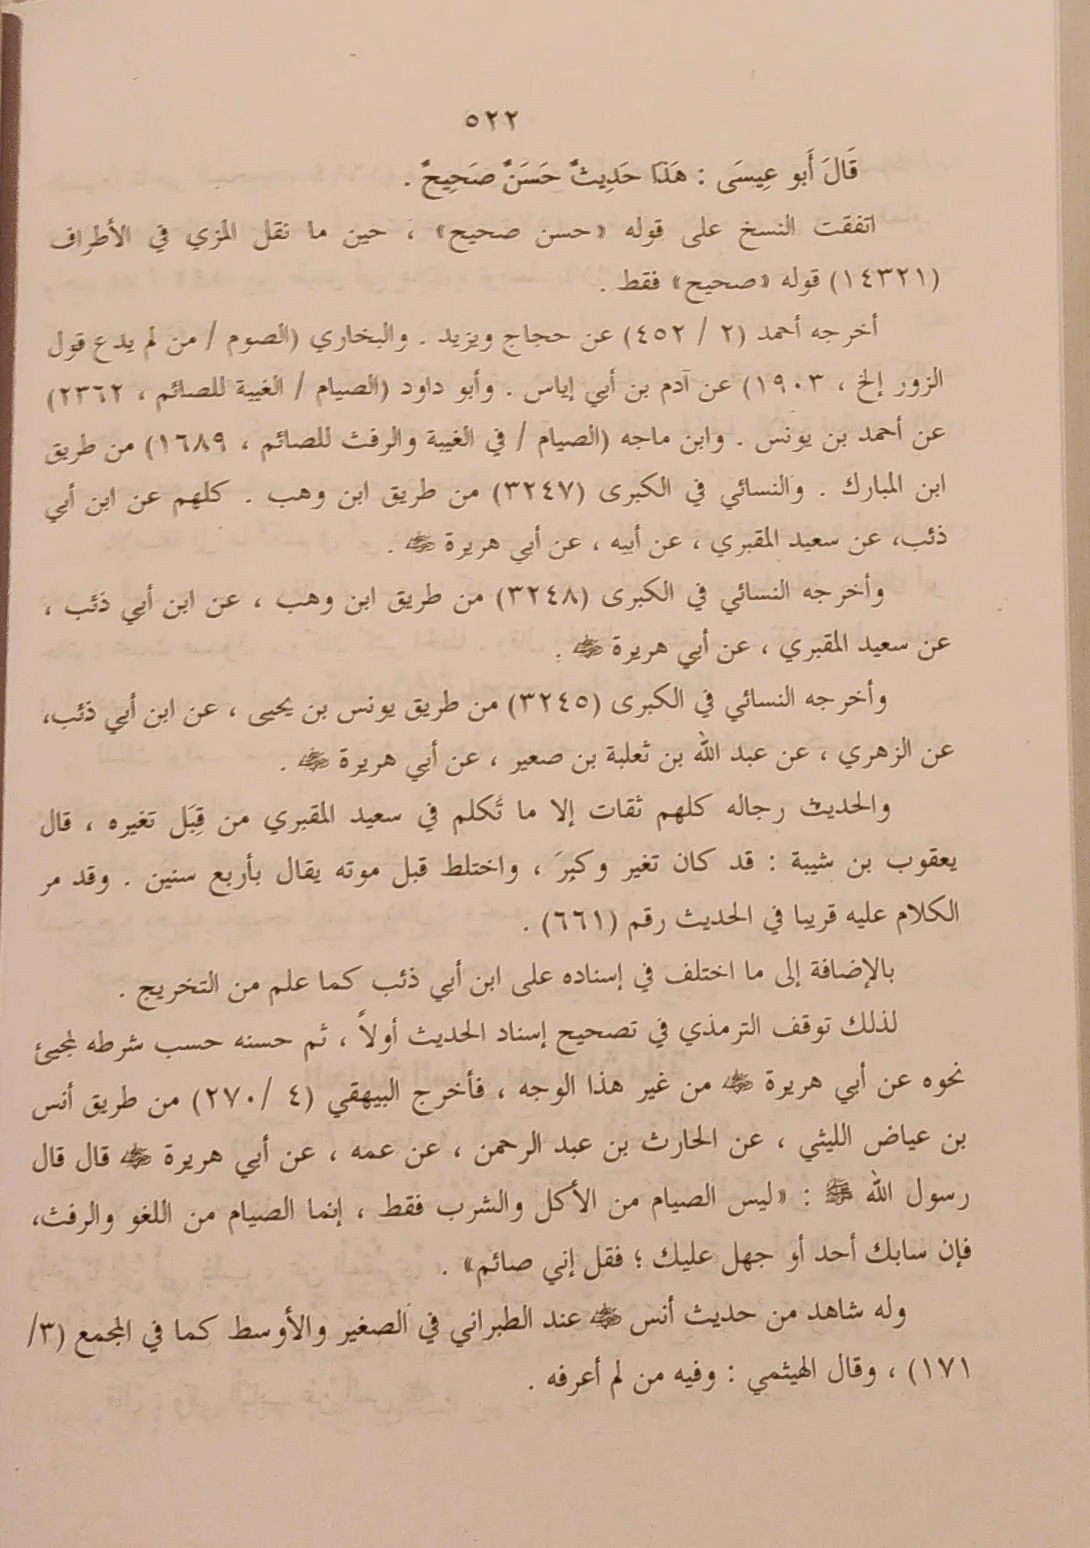 ٥٢٢
قَالَ أَبو عِيسَى : هَذَا حَدِيثٌ حَسَنٌ صَحِيحٌ .
اتفقت النسخ على قوله «حسن صحيح» ، حين ما نقل المزي في الأطراف
(١٤٣٢١) قوله «صحيح» فقط .
أخرجه أحمد (٢ / ٤٥٢) عن حجاج ويزيد . والبخاري (الصوم / من لم يدع قول
الزور إلخ ، ١٩٠٣) عن آدم بن أبي إياس . وأبو داود (الصيام / الغيبة للصائم ، ٢٣٦٢)
عن أحمد بن يونس . وابن ماجه (الصيام / في الغيبة والرفث للصائم ، ١٦٨٩) من طريق
ابن المبارك . والنسائي في الكبرى (٣٢٤٧) من طريق ابن وهب . كلهم عن ابن أبي
ذئب، عن سعيد المقبري ، عن أبيه ، عن أبي هريرة ﵁ .
وأخرجه النسائي في الكبرى (٣٢٤٨) من طريق ابن وهب ، عن ابن أبي ذئب ،
عن سعيد المقبري ، عن أبي هريرة ﵁ .
وأخرجه النسائي في الكبرى (٣٢٤٥) من طريق يونس بن يحيى ، عن ابن أبي ذئب،
عن الزهري ، عن عبد الله بن ثعلبة بن صعير ، عن أبي هريرة ﵁ .
والحديث رجاله كلهم ثقات إلا ما تُكلم في سعيد المقبري من قِبَل تغيره ، قال
يعقوب بن شيبة : قد كان تغير وكبِرَ ، واختلط قبل موته يقال بأربع سنين . وقد مر
الكلام عليه قريبا في الحديث رقم (٦٦١) .
بالإضافة إلى ما اختلف في إسناده على ابن أبي ذئب كما علم من التخريج .
لذلك توقف الترمذي في تصحيح إسناد الحديث أولاً ، ثم حسنه حسب شرطه لمجيئ
نحوه عن أبي هريرة ﵁ من غير هذا الوجه ، فأخرج البيهقي (٤ /٢٧٠) من طريق أنس
بن عياض الليثي ، عن الحارث بن عبد الرحمن ، عن عمه ، عن أبي هريرة ﵁ قال قال
رسول الله ﷺ : «ليس الصيام من الأكل والشرب فقط ، إنما الصيام من اللغو والرفث،
فإن سابك أحد أو جهل عليك ؛ فقل إني صائم» .
وله شاهد من حديث أنس ﵁ عند الطبراني في الصغير والأوسط كما في المجمع (٣/
١٧١) ، وقال الهيثمي : وفيه من لم أعرفه .